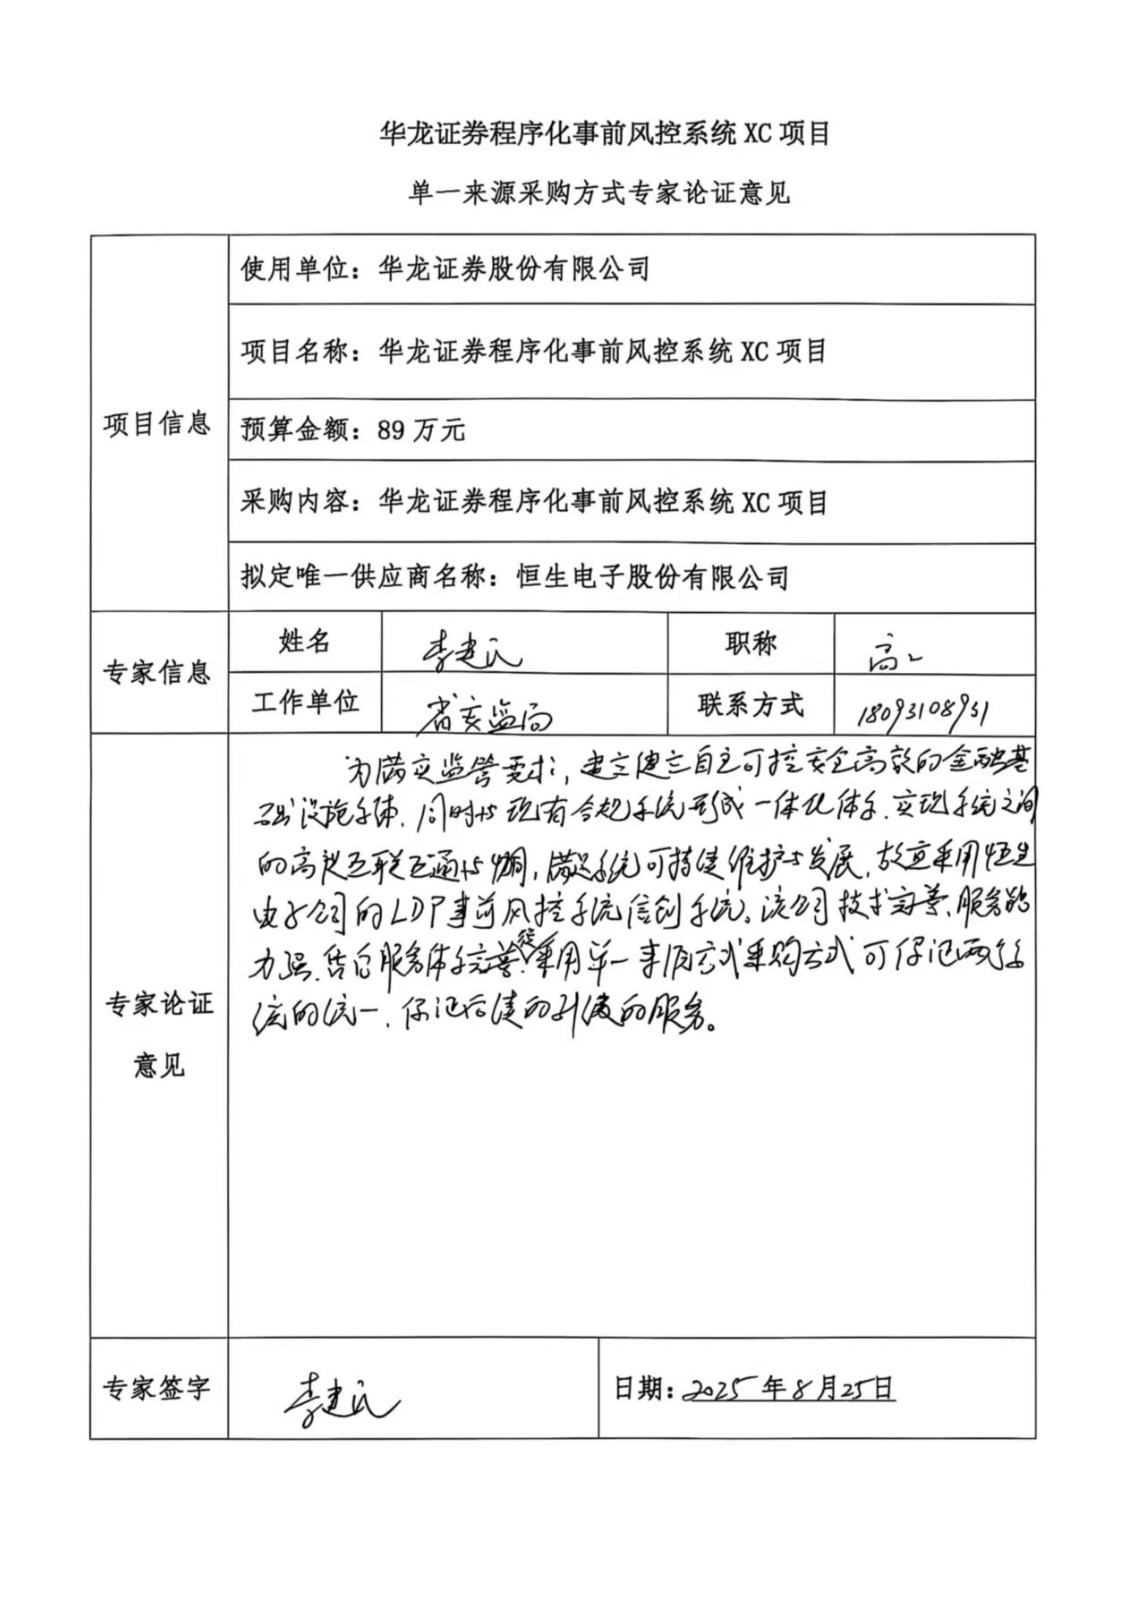 华龙证券程序化事前风控系统 XC 项目
单一来源采购方式专家论证意见
项目信息
使用单位：华龙证券股份有限公司
项目名称：华龙证券程序化事前风控系统 XC 项目
预算金额：89 万元
采购内容：华龙证券程序化事前风控系统 XC 项目
拟定唯一供应商名称：恒生电子股份有限公司
专家信息
姓名 李建民 职称 高工
工作单位 联系方式 18093108931
专家论证
意见
为满足监管要求，建立健全自主可控安全高效的金融基
础设施体系、同时与现有系统形成一体化体系、实现系统之间
的高效互联互通与协同，满足系统可持续维护与发展，故宜采用恒生
电子公司的LDP事前风控系统信创系统。该公司技术完善、服务能
力强、售后服务体系完善、采用单一来源方式采购方式可保证两个系
统的统一、保证后续的升级的服务。
专家签字 李建民 日期：2025 年 8 月 25 日